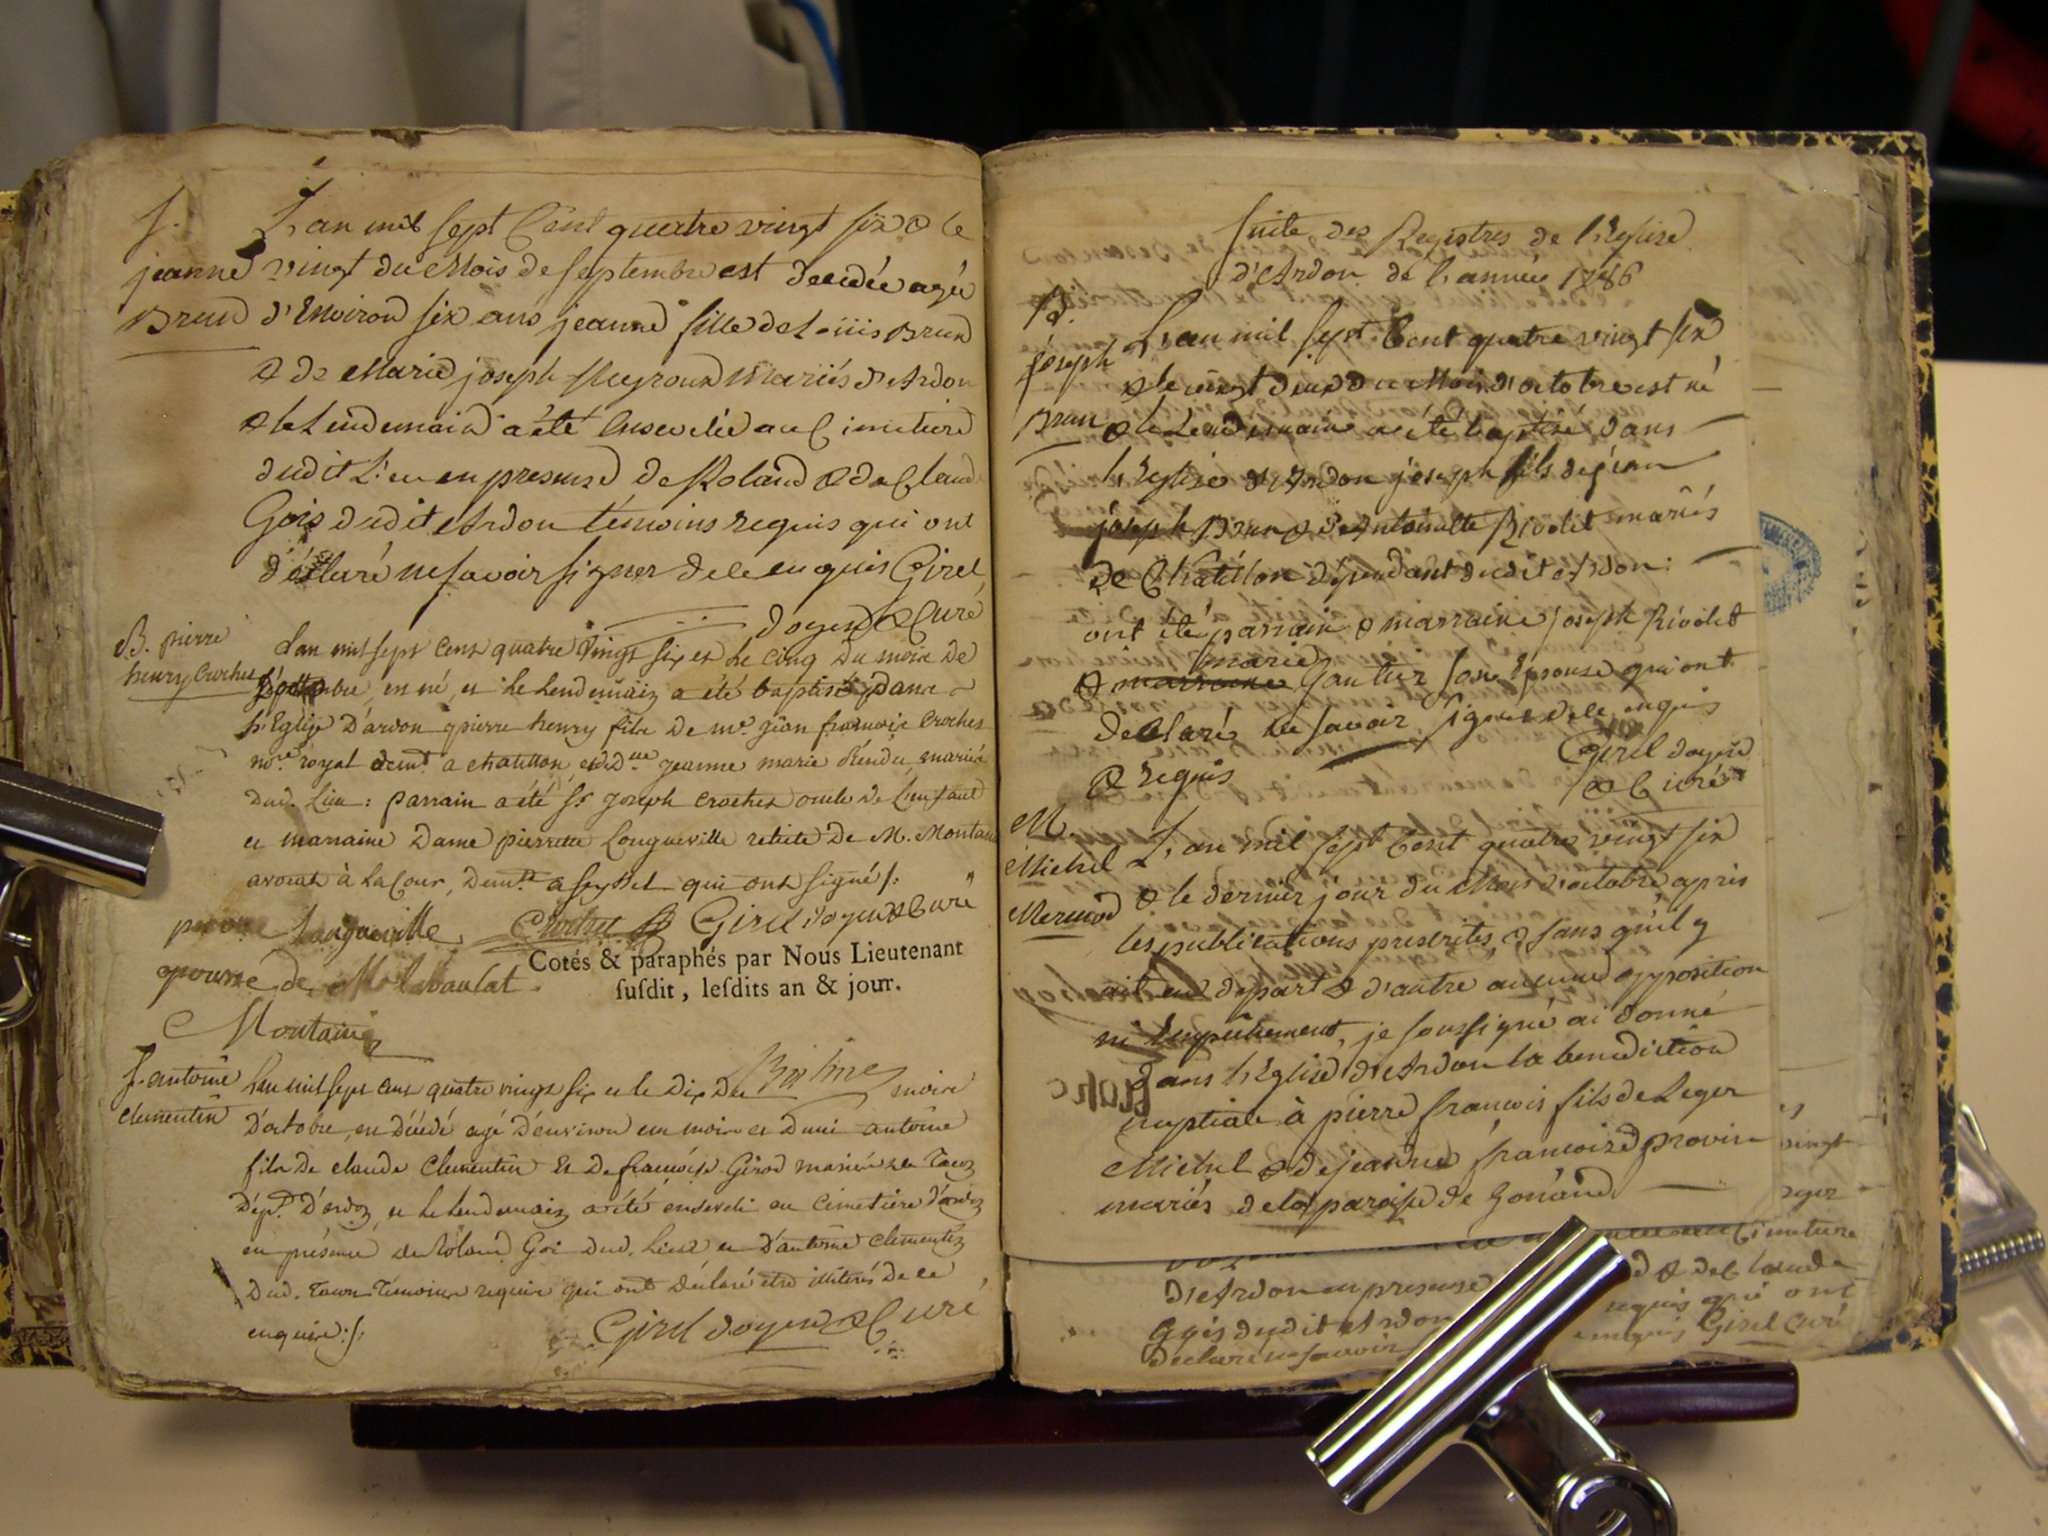 S. L'an mil sept Cent quatre vingt six & le
jeanne vingt du Mois de septembre est decedée agée
Brun d'Environ six ans jeanne fille de Loüis Brun
& de Marie joseph Meyroux Mariés d'Ardon
& le Lendemain a été Ensevelie au Cimetiere
dudit Lieu en presence de Roland & de Claude
Gois dudit Ardon témoins requis qui ont
déclaré ne savoir signer de ce enquis Girel
doyen & Curé
B. pierre
henry Crochet
L'an mil sept cent quatre vingt six et le cinq du mois de
en né, et le lendemain a été baptisé dans
l'Eglise D'ardon pierre henry fils de Me jean francois Crochet
nore royal demt a chatillon et dlle jeanne marie Rendu mariés
dud. Lieu : parrain a été sr joseph crochet oncle de L'enfant
et marraine Dame pierrette Longueville de M. Montain
avocat à la Cour, demte a seyssel qui ont signé :
Longueville Crochet Girel doyen & Curé
Cotés & paraphés par Nous Lieutenant
susdit, lesdits an & jour.
épouse de
Montain
S. antoine
clementin
L'an mil sept cent quatre vingt six et le dix du mois
D'octobre, en décédé agé D'environ un mois et Demi antoine
fils de claude clementin et de francoise Girod mariés de Tacon
Dépt. D'ardon et le lendemain a été enseveli au cimetiere d'ardon
en présence de Roland Goi dud. Lieu et D'antoine clementin
Dud. Tacon Temoins requis qui ont déclaré etre illiterés de ce
enquis :/:
Girel doyen & Curé
suite des Registres de l'Eglise
d'Ardon de l'année 1786
B.
joseph
Brun
L'an mil sept Cent quatre vingt six
& le vingt deux du Mois d'octobre est né
& le Lendemain a été baptisé dans
l'Eglise d'Ardon joseph fils de jean
joseph Brun & d'Antoinette Rivolet mariés
de Chatillon dépendant dudit Ardon :
ont été parrain & marraine joseph Rivolet
marie
& marraine Gautier son Epouse qui ont
declaré ne savoir signer de ce enquis
& requis
Girel doyen
& Curé
M.
Michel
Mermod
L'an mil sept Cent quatre vingt six
& le dernier jour du Mois d'octobre après
les publications prescrites, & sans qu'il y
ait eu de part & d'autre aucune opposition
ni Empêchement, je soussigné ai donné
dans l'Eglise d'Ardon la benediction
nuptiale à pierre francois fils de Leger
Michel & de jeanne francoise
mariés de la paroisse de
Cimetiere
d'Ardon en presence & de Claude
Gois dudit Ardon requis qui ont
declaré ne savoir enquis Girel Curé